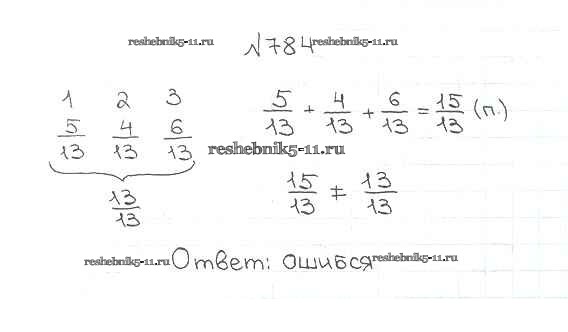 reshebnik5-11.ru №784 reshebnik5-11.ru
1 2 3
5/13 4/13 6/13
13/13
5/13 + 4/13 + 6/13 = 15/13 (п.)
reshebnik5-11.ru
15/13 ≠ 13/13
reshebnik5-11.ru Ответ: ошибся reshebnik5-11.ru